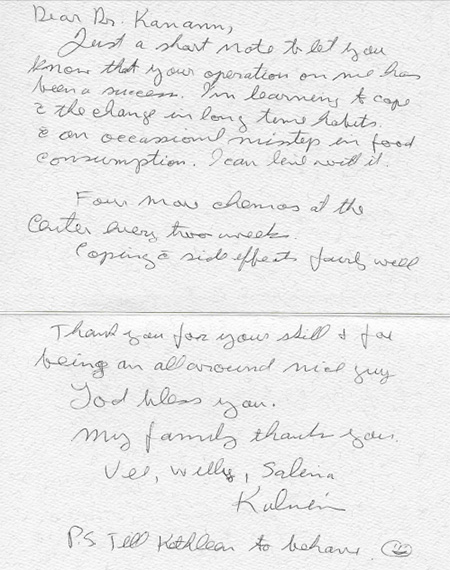 Dear Dr. Kanann,
Just a short note to let you
know that your operation on me has
been a success. I'm learning to cope
c̄ the change in long time habits.
& an occassional misstep in food
consumption. I can live with it.
Four more chemos at the
Center every two weeks.
Coping c̄ side effects fairly well
Thank you for your skill & for
being an all around nice guy
God bless you.
My family thanks you.
Vee, Willy, Salena
P.S Tell Kathleen to behave.